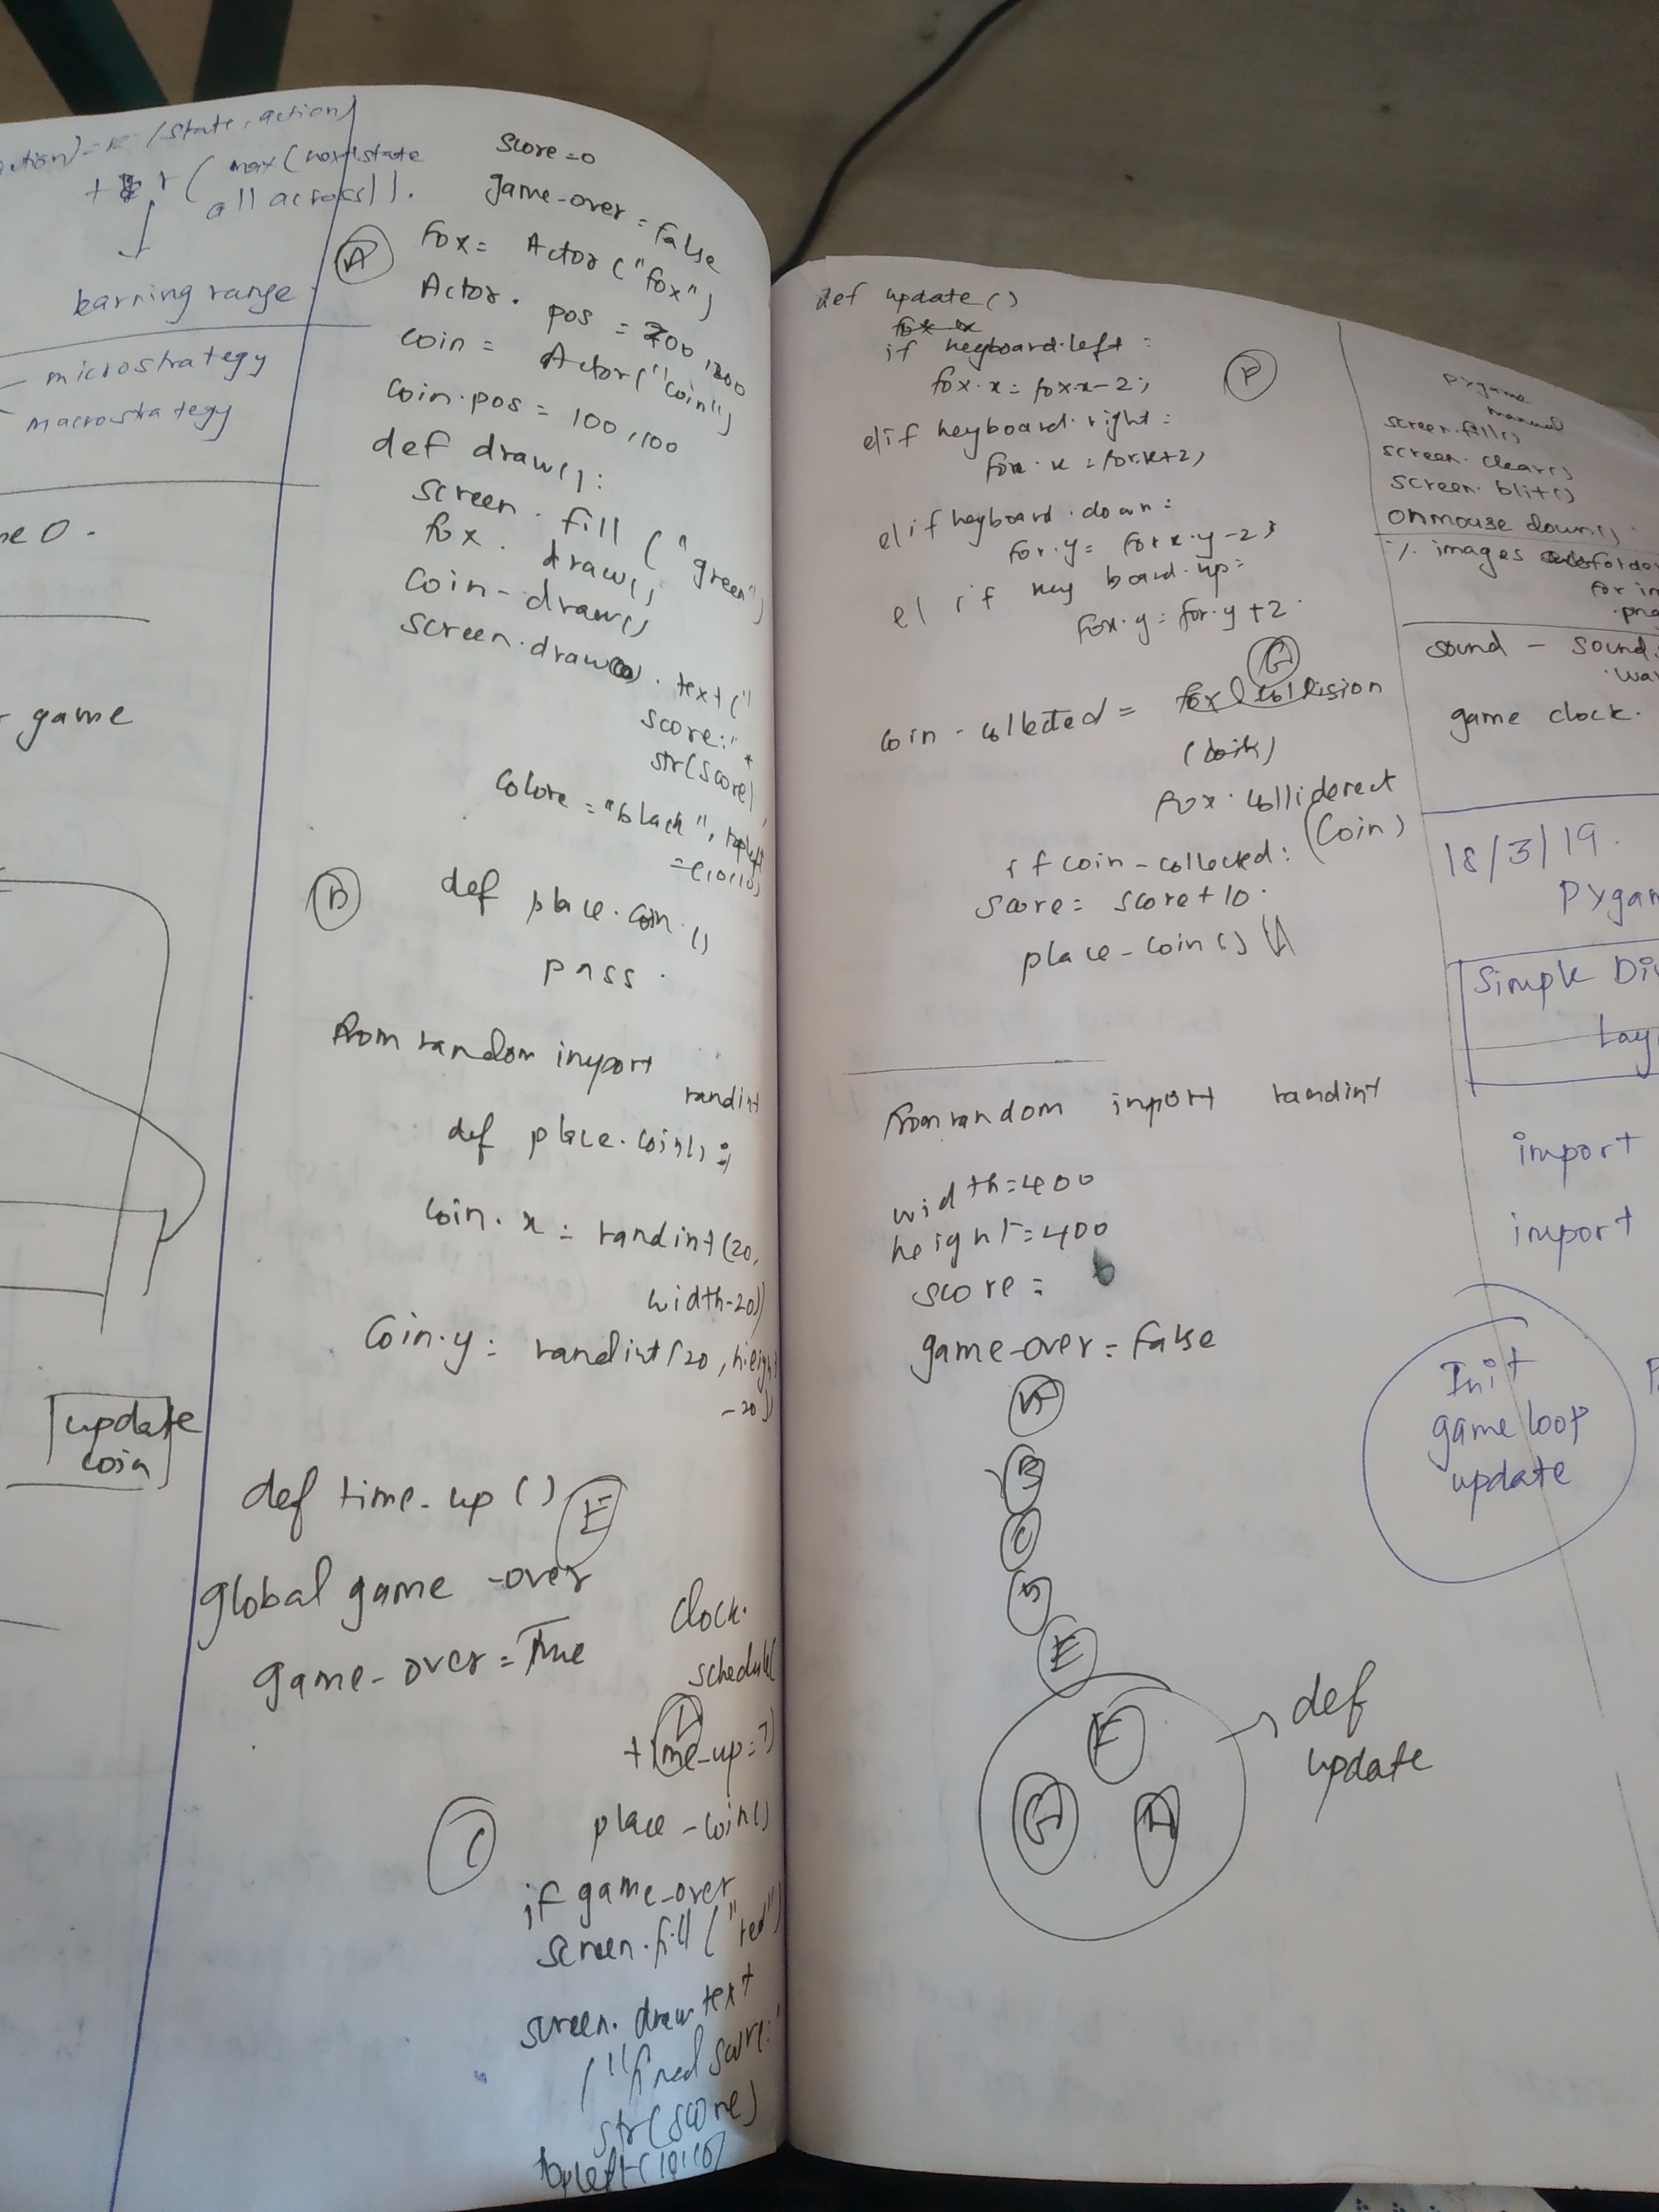 (state, action)
+ r (max(
all across)).
barring range
microstrategy
macrostrategy
game
update
coin
score=0
game-over = false
A
fox = Actor ("fox")
Actor. pos = 200, 200
coin = Actor("coin")
coin.pos = 100,100
def draw():
screen. fill ("green")
fox. draw()
coin-draw()
screen.draw . text("
score:"
str(score)
colore = "black", topleft
=(10,10)
def place.coin.()
pass.
from random import
randint
def place.coin():
coin. x = randint(20,
width-20)
coin.y = randint(20, hieght
-20)
def time-up ()
E
global game -over
game-over = True
clock.
schedule(
time-up=7)
place-coin()
C
if game-over
screen.fill ("red")
screen. draw.text
("final score:"
str(score)
topleft(10,10)
def update()
if keyboard.left =
fox.x = fox.x-2;
F
elif keyboard.right =
fox.x = fox.x+2;
elif keyboard.down =
fox.y = fox.y-2;
elif key board.up =
fox.y = fox.y+2.
G
coin-collected = fox collision
(coin)
fox.colliderect
(coin)
if coin-collected:
score = score+10.
place-coin()
from random import randint
width=400
height=400
score =
game-over = false
A
B
C
D
E
F
G
H
def
update
pygame
manual
screen.fill()
screen.clear()
screen.blit()
onmouse down()
images folder
for
sound - sound.
game clock.
18/3/19.
Simple
import
import
Init
game loop
update